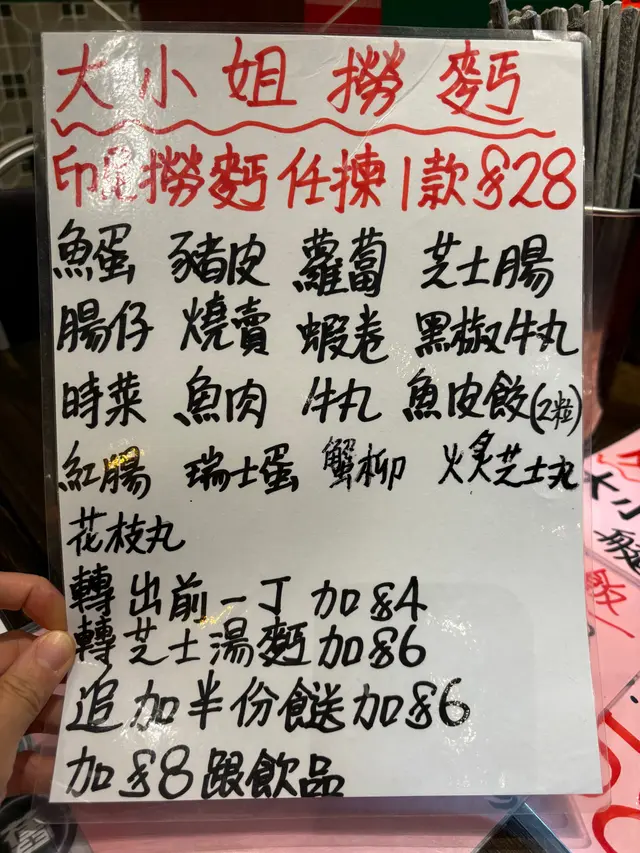 大小姐撈麪
印尼撈麪任揀1款$28
魚蛋 豬皮 蘿蔔 芝士腸
腸仔 燒賣 蝦卷 黑椒牛丸
時菜 魚肉 牛丸 魚皮餃(2粒)
紅腸 瑞士蛋 蟹柳 火炙芝士丸
花枝丸
轉出前一丁加$4
轉芝士湯麪加$6
追加半份餸加$6
加$8跟飲品